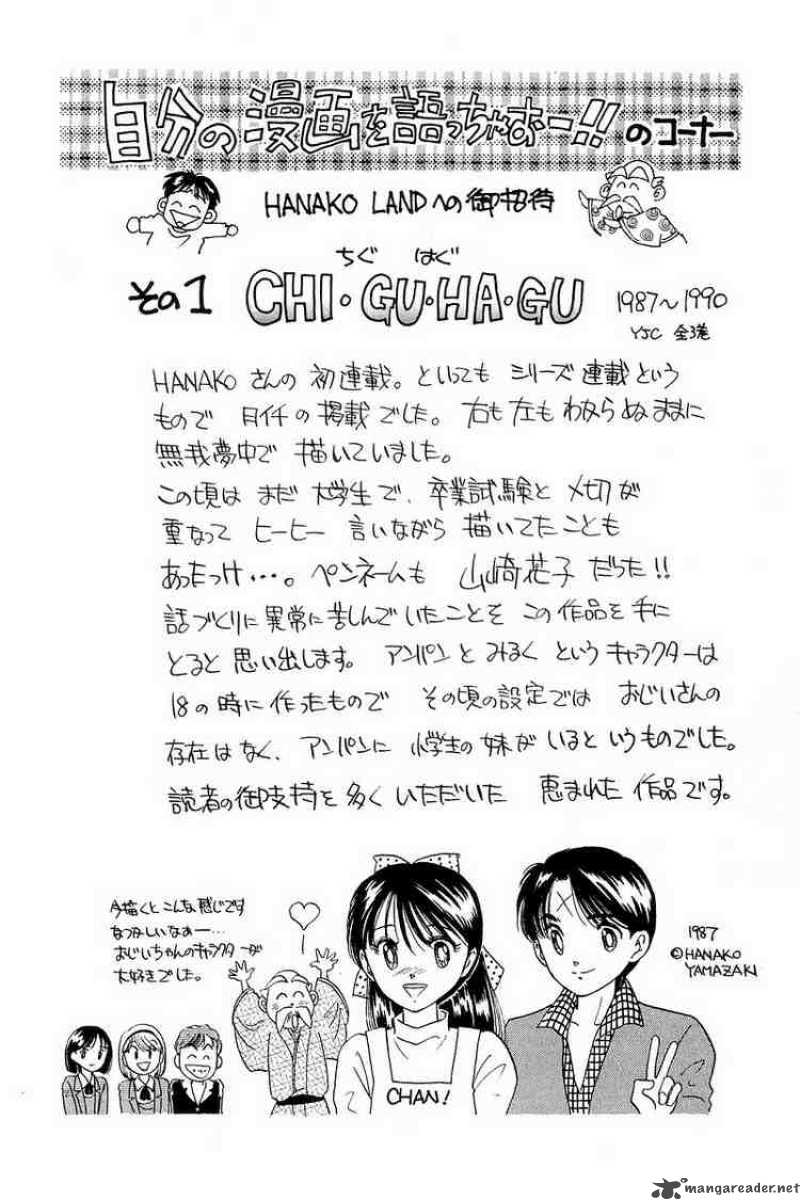 自分の漫画を語っちゃおー!!のコーナー
HANAKO LANDへの御招待
ちぐ はぐ
その1 CHI・GU・HA・GU 1987〜1990
YJC 全3巻
HANAKOさんの初連載。といってもシリーズ連載という
もので月イチの掲載でした。右も左もわからぬままに
無我夢中で描いていました。
この頃はまだ大学生で、卒業試験と〆切が
重なってヒーヒー言いながら描いてたことも
あったっけ…。ペンネームも山崎花子だった!!
話づくりに異常に苦しんでいたことをこの作品を手に
とると思い出します。アンパンとみるくというキャラクターは
18の時に作ったもので その頃の設定ではおじいさんの
存在はなく、アンパンに小学生の妹がいるというものでした。
読者の御支持を多くいただいた 恵まれた作品です。
今描くとこんな感じです
なつかしいなぁー…
おじいちゃんのキャラクターが
大好きでした。
1987
©HANAKO
YAMAZAKI
CHAN!
mangareader.net